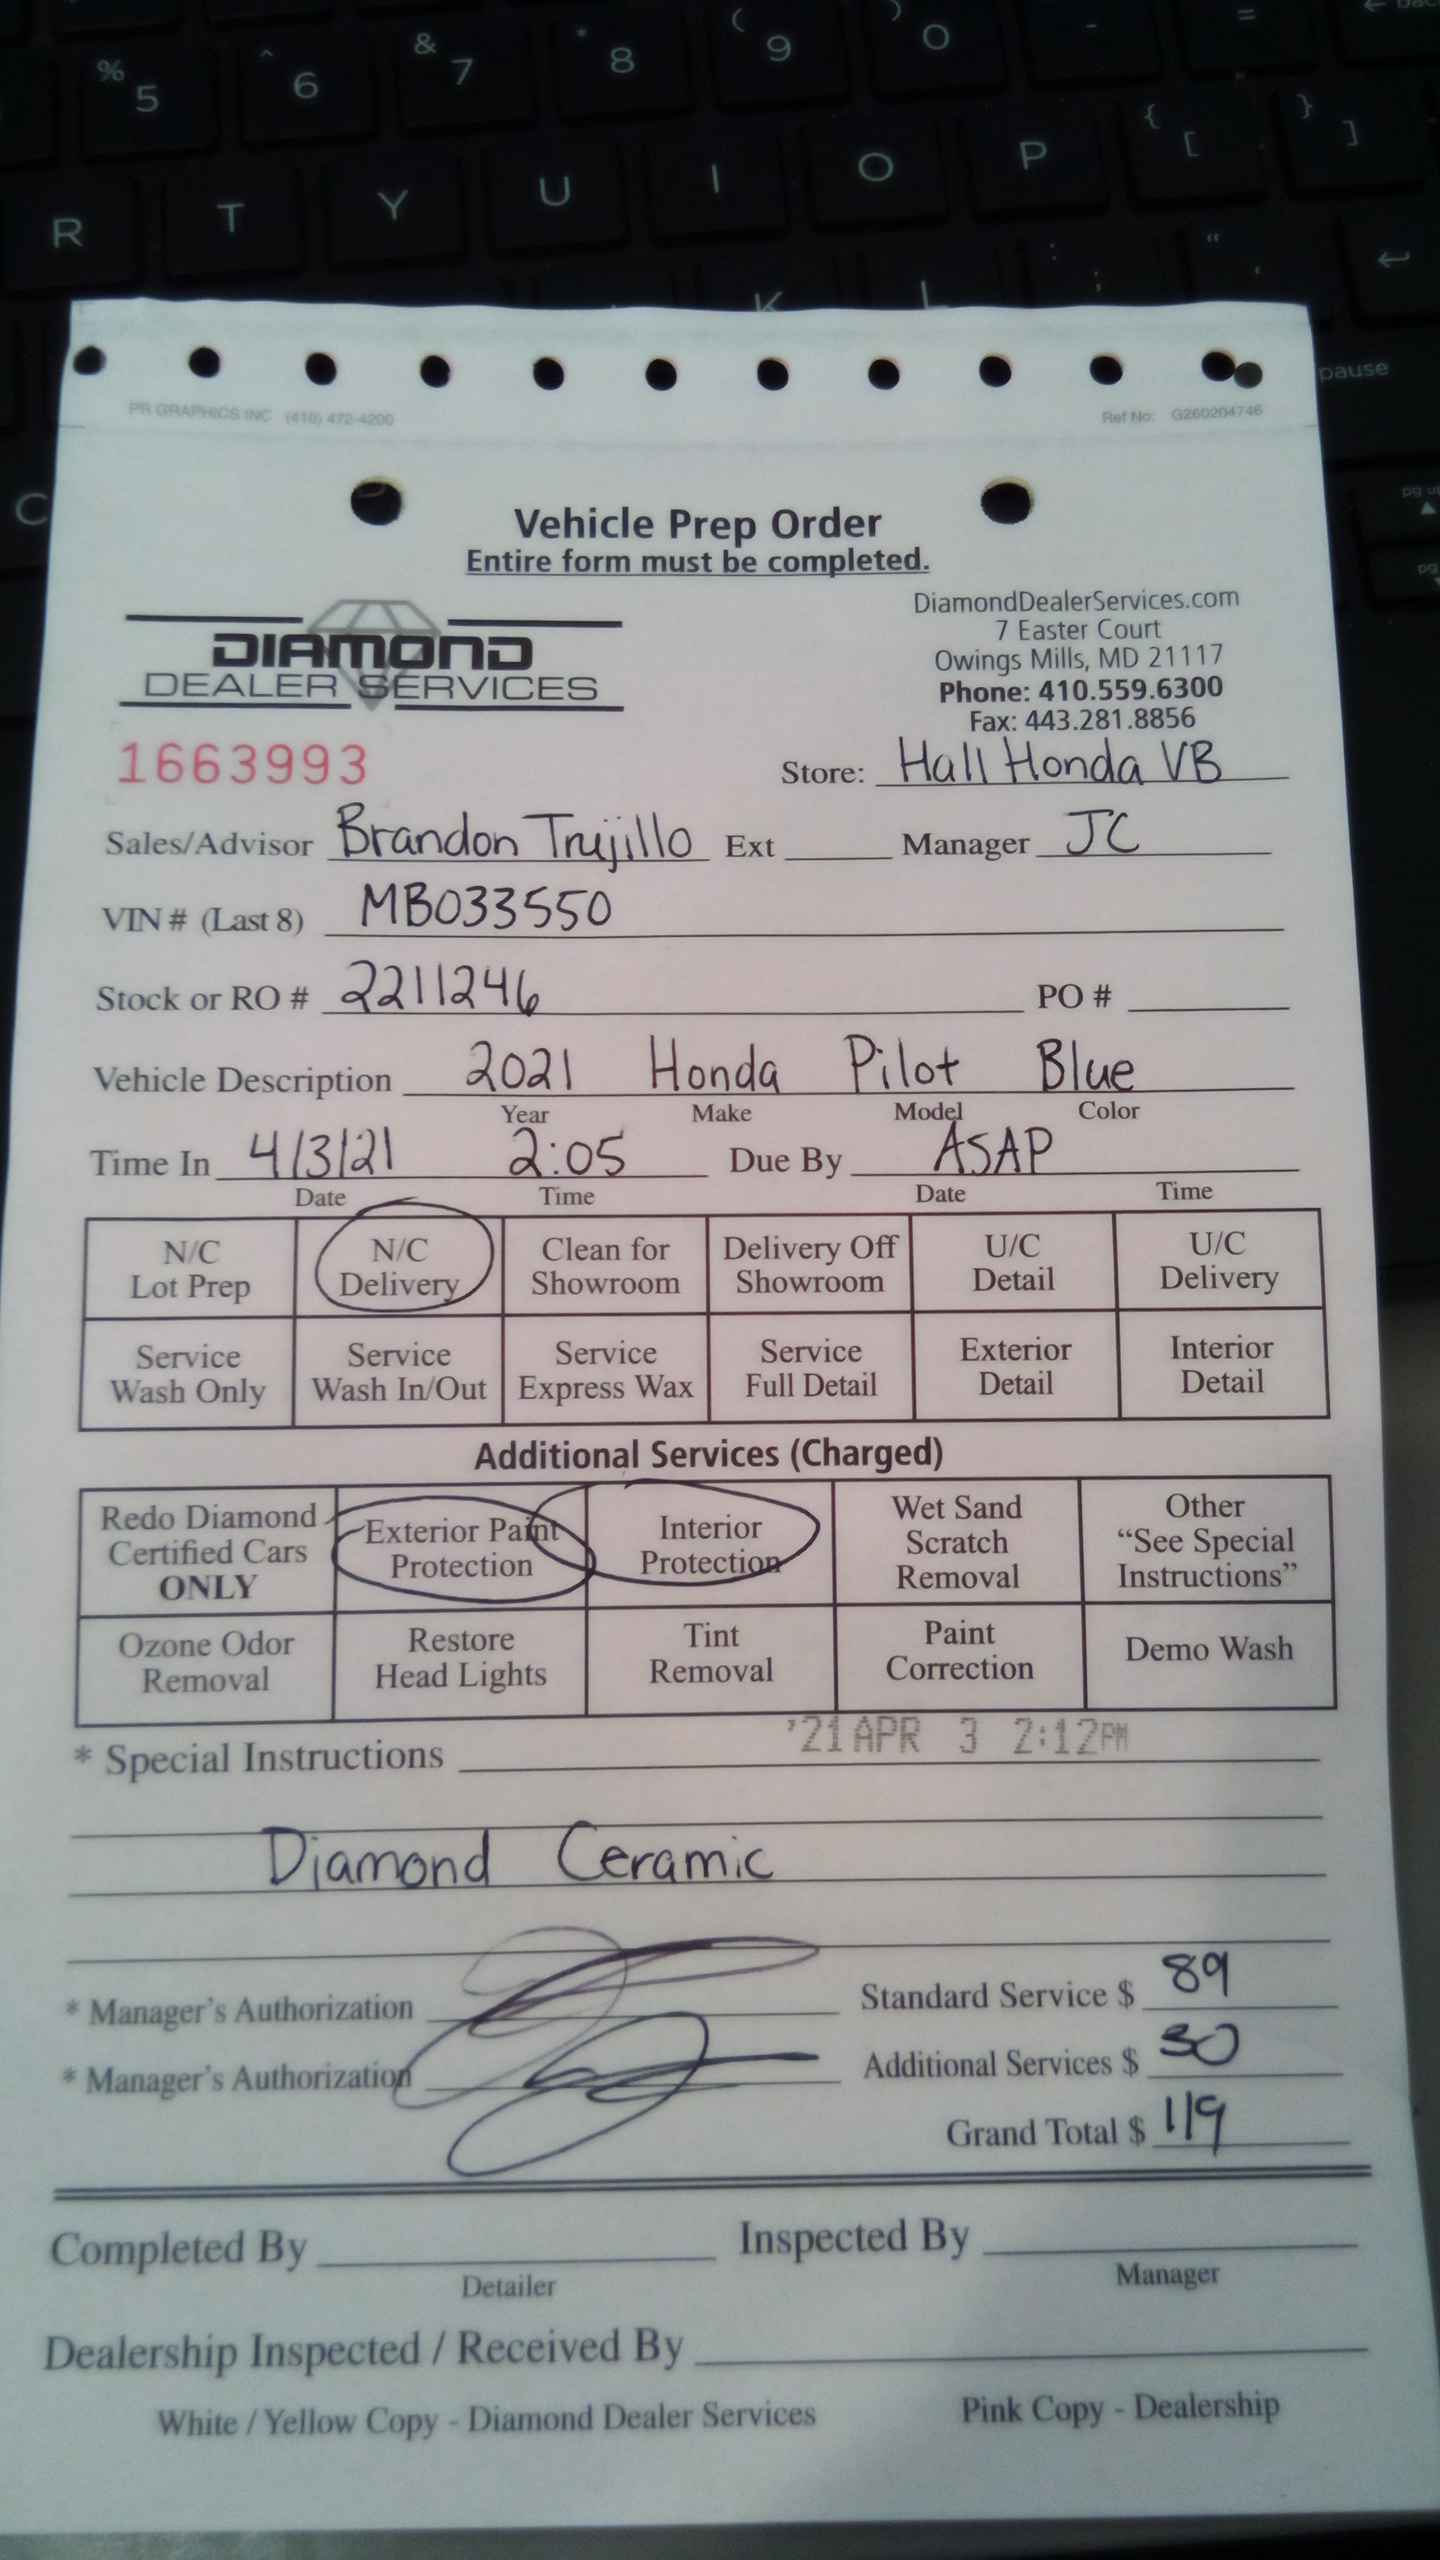 % 5 ^ 6 & 7 * 8 ( 9 ) 0 - =
R T Y U I O P { [ } ]
K L : ; " '
pause
C
PR GRAPHICS INC (410) 472-4200 Ref No: G260204746
Vehicle Prep Order
Entire form must be completed.
DIAMOND
DEALER SERVICES
DiamondDealerServices.com
7 Easter Court
Owings Mills, MD 21117
Phone: 410.559.6300
Fax: 443.281.8856
1663993 Store: Hall Honda VB
Sales/Advisor Brandon Trujillo Ext Manager JC
VIN # (Last 8) MB033550
Stock or RO # 2211246 PO #
Vehicle Description 2021 Honda Pilot Blue
Year Make Model Color
Time In 4/3/21 2:05 Due By ASAP
Date Time Date Time
N/C Lot Prep
N/C Delivery
Clean for Showroom
Delivery Off Showroom
U/C Detail
U/C Delivery
Service Wash Only
Service Wash In/Out
Service Express Wax
Service Full Detail
Exterior Detail
Interior Detail
Additional Services (Charged)
Redo Diamond Certified Cars ONLY
Exterior Paint Protection
Interior Protection
Wet Sand Scratch Removal
Other "See Special Instructions"
Ozone Odor Removal
Restore Head Lights
Tint Removal
Paint Correction
Demo Wash
'21 APR 3 2:12PM
* Special Instructions
Diamond Ceramic
* Manager's Authorization Standard Service $ 89
* Manager's Authorization Additional Services $ 30
Grand Total $ 119
Completed By Inspected By
Detailer Manager
Dealership Inspected / Received By
White / Yellow Copy - Diamond Dealer Services Pink Copy - Dealership